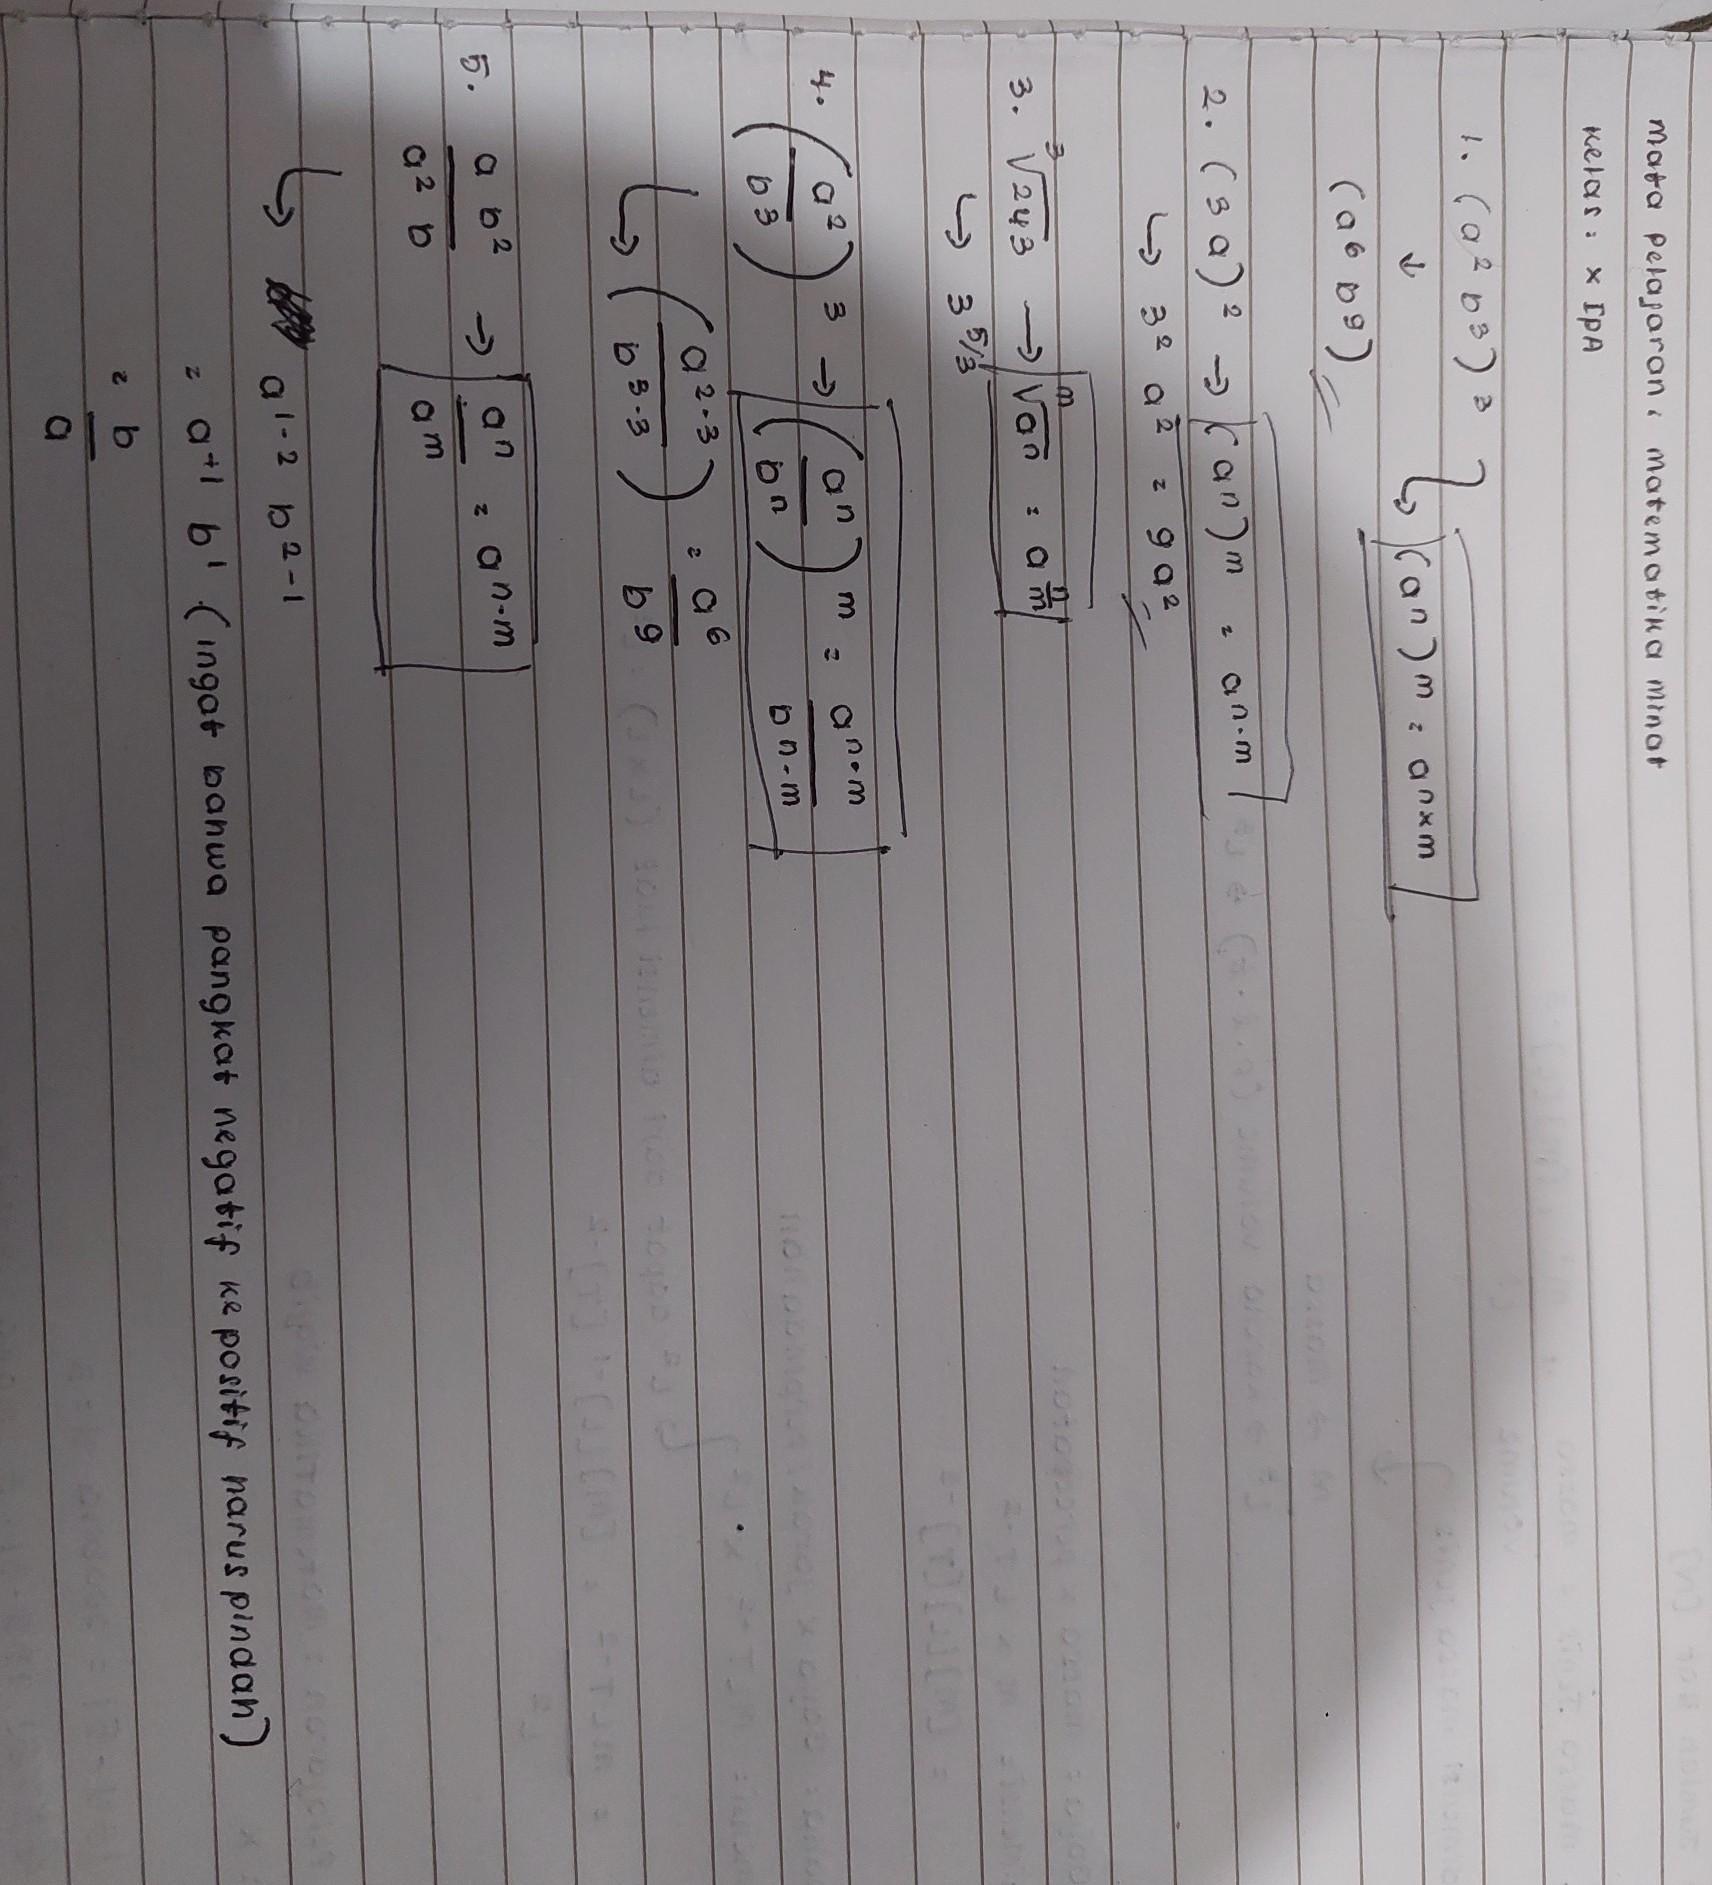 mata pelajaran : matematika minat
kelas : X IPA
1. (a² b³)³
↓ ↳ (aⁿ)m = aⁿˣm
(a⁶ b⁹)
2. (3a)² → (aⁿ)m = aⁿ·m
↳ 3² a² = 9a²
3. ³√243 → m√aⁿ = a n/m
↳ 3 5/3
4. (a²/b³)³ → (aⁿ/bⁿ)m = aⁿ·m/bⁿ·m
↳ (a²·³/b³·³) = a⁶/b⁹
5. a b²/a² b → aⁿ/am = aⁿ·m
↳ a¹⁻² b²⁻¹
= a⁺¹ b¹ (ingat bahwa pangkat negatif ke positif harus pindah)
= b/a